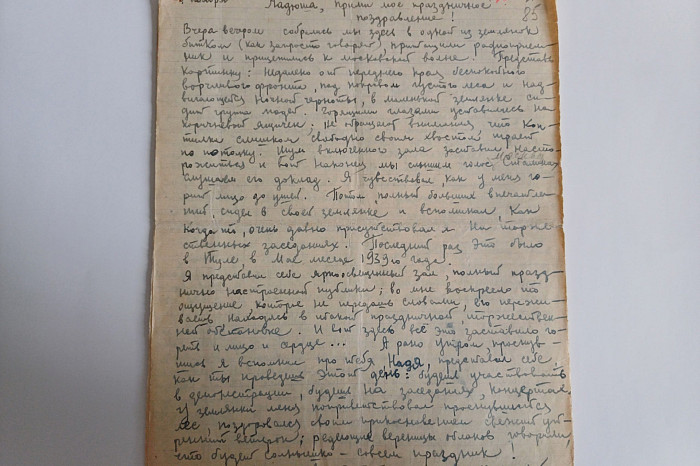 Надюша, прими мое праздничное
поздравление! 85
Вчера вечером собрались мы здесь в одной из землянок
битком (как запросто говорят), притащили радиоприем-
ник и прицепились к московской волне. Представь
картинку: недалеко от переднего края беспокойного
ворчливого фронта, под покровом густого леса и над-
вигающейся ночной черноты, в маленькой землянке си-
дит группа людей. Горящими глазами уставились на
коричневый ящичек. Не обращают внимания что коп-
тилка слишком свободно своим хвостом играет
по потолку. Шум включенного зала заставил насто-
рожиться и вот наконец мы слышим голос Сталина
слушаем его доклад. Я чувствовал, как у меня го-
рит лицо до ушей. Потом, полный больших впечатле-
ний, сидел в своей землянке и вспоминал, как
когда-то, очень давно присутствовал я на торже-
ственных заседаниях. Последний раз это было
в Туле, в Мае месяце 1939го года.
Я представил себе яркоосвещенный зал, полный празд-
нично настроенной публики; во мне воскресло то
ощущение, которое не передашь словами, его пережи-
ваешь находясь в такой праздничной, торжествен-
ной обстановке. И вот здесь всё это заставило го-
реть и лицо и сердце... А рано утром проснув-
шись я вспомнил про тебя, Надя, представил себе,
как ты проведешь этот день: будешь участвовать
в демонстрации, будешь на заседаниях, концертах.
У землянки меня поприветствовал проснувшийся
лес, поздоровался своим прикосновением свежий ут-
ренний ветерок; редеющие вереницы облаков говорили
что будет солнышко - совсем праздник!